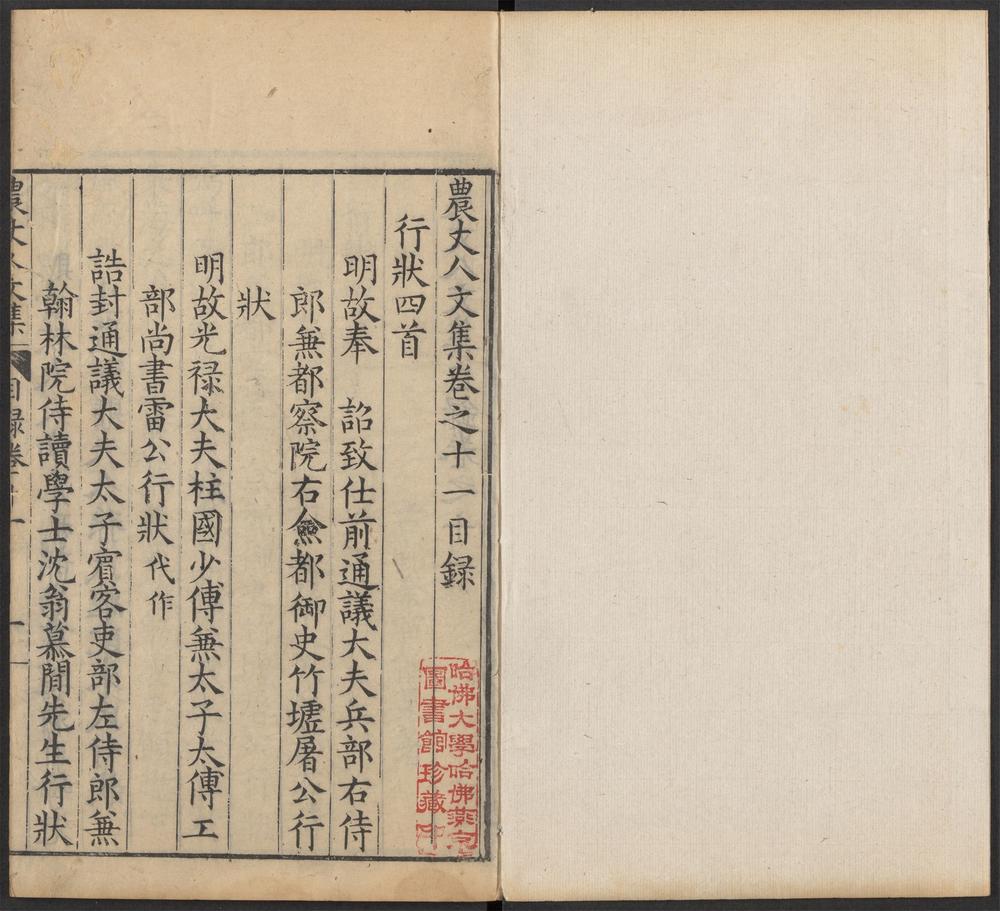 農丈人文集卷之十一目録
行狀四首
明故奉　詔致仕前通議大夫兵部右侍
郎兼都察院右僉都御史竹墟屠公行
狀
明故光禄大夫柱國少傅兼太子太傅工
部尚書雷公行狀代作
誥封通議大夫太子賓客吏部左侍郎兼
翰林院侍讀學士沈翁慕閒先生行狀
農丈人文集
目録卷十一
一
哈佛大學哈佛燕京
圖書館珍藏印